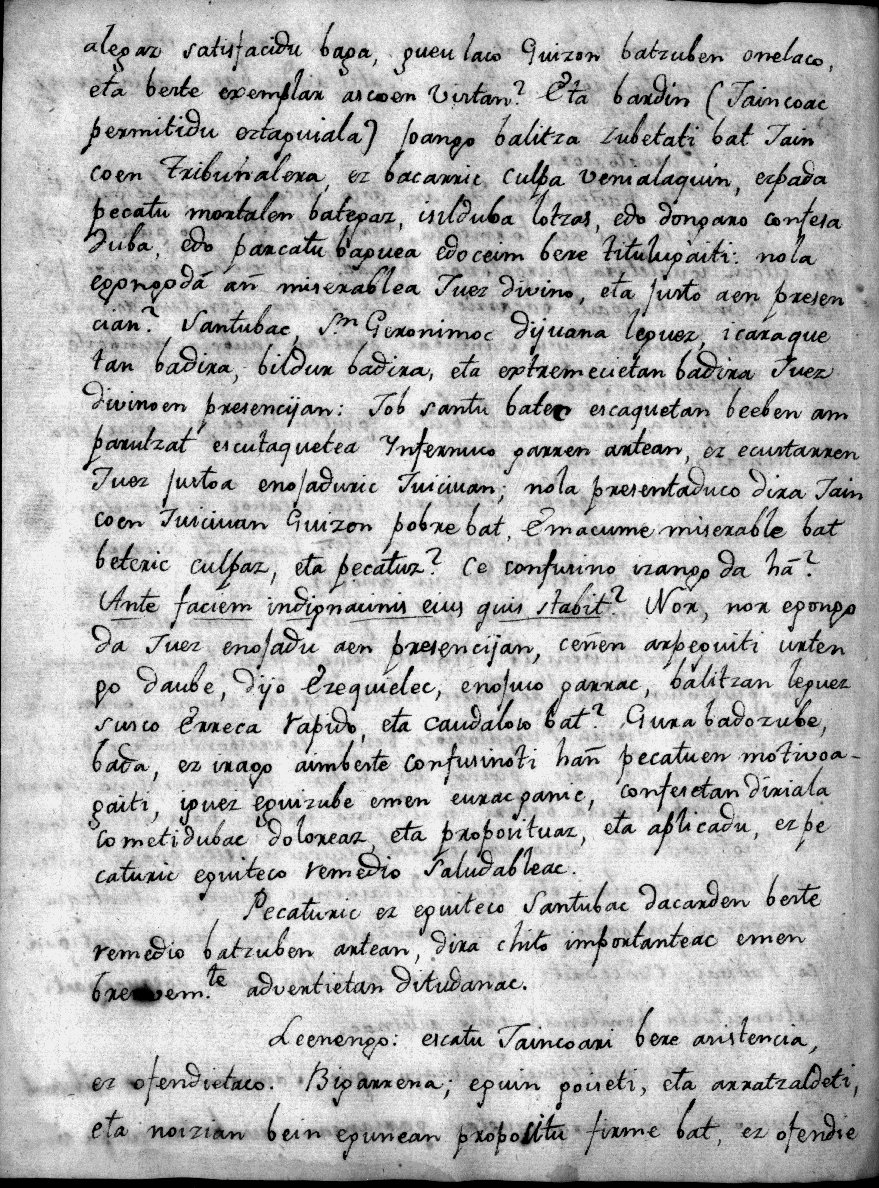 alegaz satisfacidu baga, gueu laco Guizon batzuben onelaco,
eta berte exemplar ascoen Vistan? Eta bardin (Jaincoac
permitidu eztaguiala) joango balitza zubetati bat Jain
coen Tribunalera, ez bacarric culpa venialaquin, ezpada
pecatu mortalen bategaz, isilduba lotzas, edo dongaro confesa
duba, edo parcatu baguea edoceim bere titulugaiti: nola
egongo dā añ miserablea Juez divino, eta justo aen presen
cian? Santubac, Sn Geronimoc dijuana leguez, icaraque
tan badira, bildur badira, eta extremecietan badira Juez
divinoen presencijan: Job santu batec escaquetan beeben am
parutzat escutaquetea Ynfernuco garren artean, ez ecustarren
Juez justoa enojaduric Juiciuan; nola presentaduco dira Jain
coen Juiciuan Guizon pobre bat, Emacume miserable bat
beteric culpaz, eta pecatuz? Ce confusino izango da hā?
Ante faciem indignacionis eius quis stabit? Nor, nor egongo
da Juez enojadu aen presencijan, ceñen arpeguiti urten
go daube, dijo Ezequielec, enojuco garrac, balitzan leguez
susco Erreca rapido, eta caudaloso bat? Gura badozube,
bada, ez izago aimberte confusinoti hañ pecatuen motivoa-
gaiti, iguez eguizube emen euracganic, confesetan diriala
cometidubac doloreaz, eta proposituaz, eta aplicadu, ez pe
caturic eguiteco remedio Saludableac.
Pecaturic ez eguiteco Santubac dacarden berte
remedio batzuben artean, dira chito importanteac emen
brevem.te advertietan ditudanac.
Leenengo: escatu Jaincoari bere asistencia,
ez ofendietaco. Bigarrena; eguin goiseti, eta arratzaldeti,
eta noizian bein egunean propositu firme bat, ez ofendie